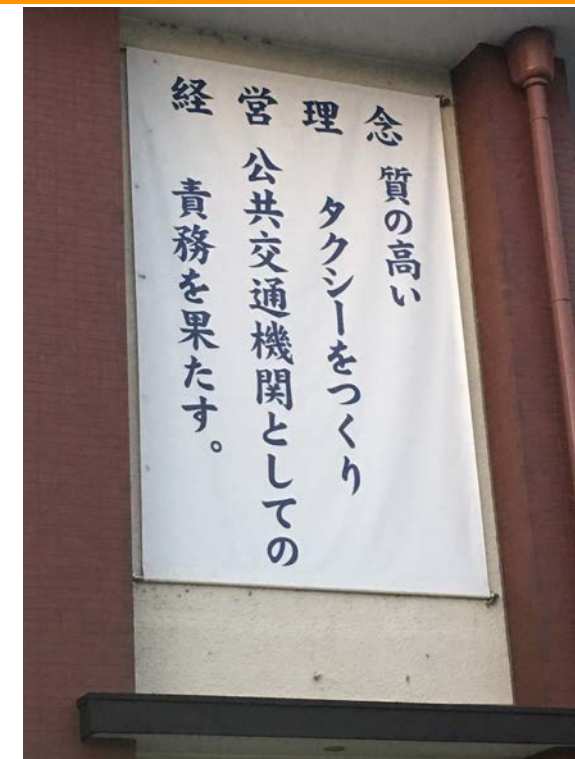 経営理念
質の高い
タクシーをつくり
公共交通機関としての
責務を果たす。